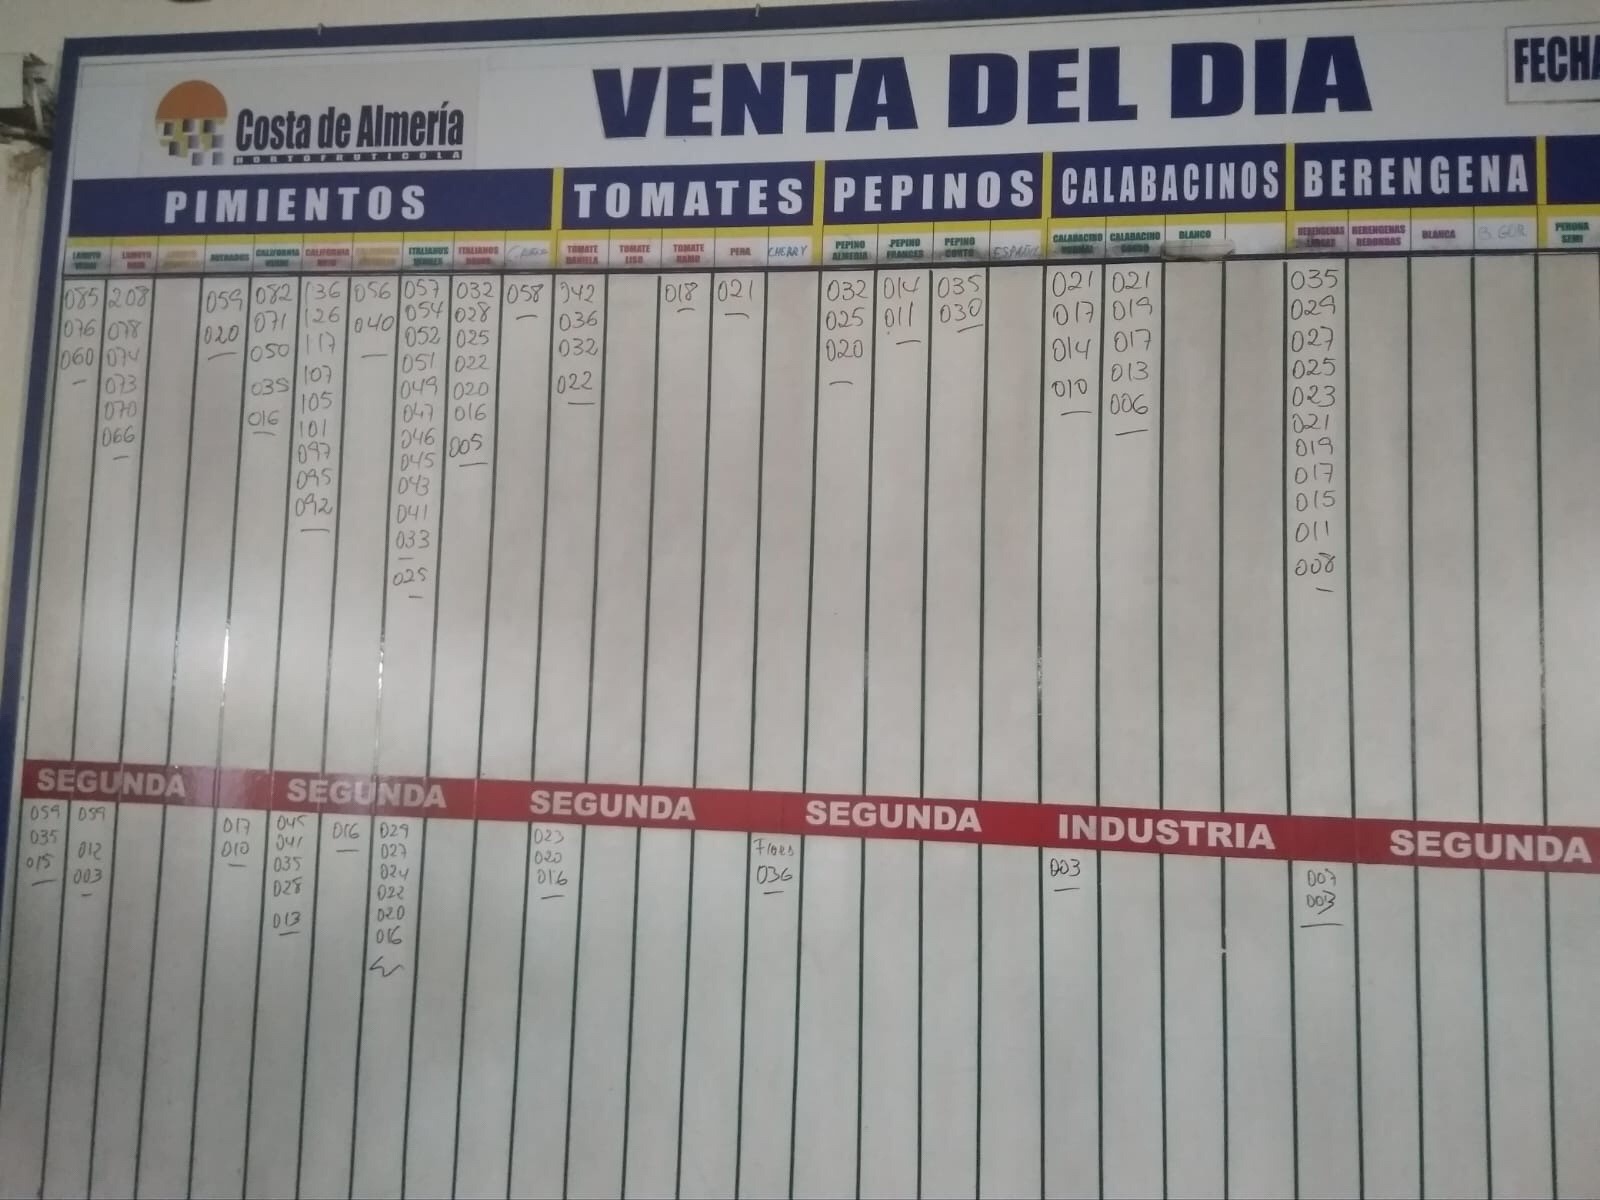 VENTA DEL DIA
FECHA
Costa de Almería
HORTOFRUTICOLA
PIMIENTOS TOMATES PEPINOS CALABACINOS BERENGENA
LAMUYO VERDE
LAMUYO ROJO
ASURADOS
CALIFORNIA VERDE
CALIFORNIA ROJO
ITALIANOS VERDES
ITALIANOS
TOMATE DANIELA
TOMATE LISO
TOMATE RAMO
PERA
CHERRY
PEPINO ALMERIA
PEPINO FRANCES
PEPINO CORTO
ESPAÑOL
CALABACINO
CALABACINO GORDO
BLANCO
BERENGENAS LARGAS
BERENGENAS REDONDAS
BLANCA
B. GOR
085 208 059 082 136 056 057 032 058 042 018 021 032 014 035 021 021 035
076 078 020 071 126 040 054 028 036 025 011 030 017 019 029
060 074 050 117 052 025 032 020 014 017 027
073 035 107 051 022 022 010 013 025
070 016 105 049 020 006 023
066 101 047 016 021
097 046 005 019
095 045 017
092 043 015
041 011
033 008
025
SEGUNDA SEGUNDA SEGUNDA SEGUNDA INDUSTRIA SEGUNDA
059 059 017 045 016 029 023 Flores 003 007
035 012 010 041 027 020 036 003
015 003 035 024 016
028 022
013 020
016